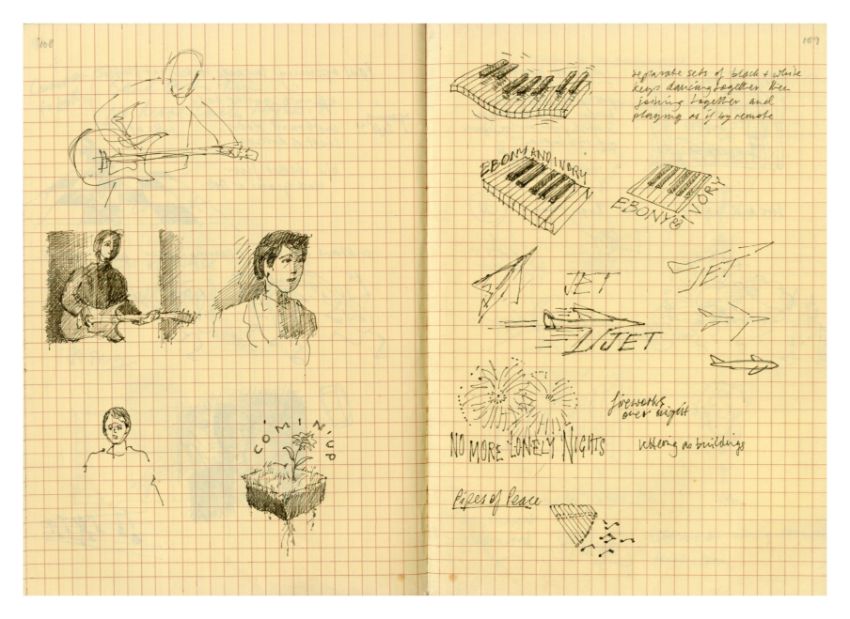 108
109
separate sets of black + white
keys dancing together then
joining together and
playing as if by remote
EBONY AND IVORY
EBONY & IVORY
JET
JET
JET
fireworks
over night
NO MORE LONELY NIGHTS
lettering as buildings
Pipes of Peace
COMIN' UP